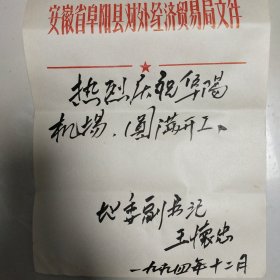 安徽省阜阳县对外经济贸易局文件
热烈庆祝阜陽
机場,圆满开工、
地委副书记
王懷忠
一九九四年十二月